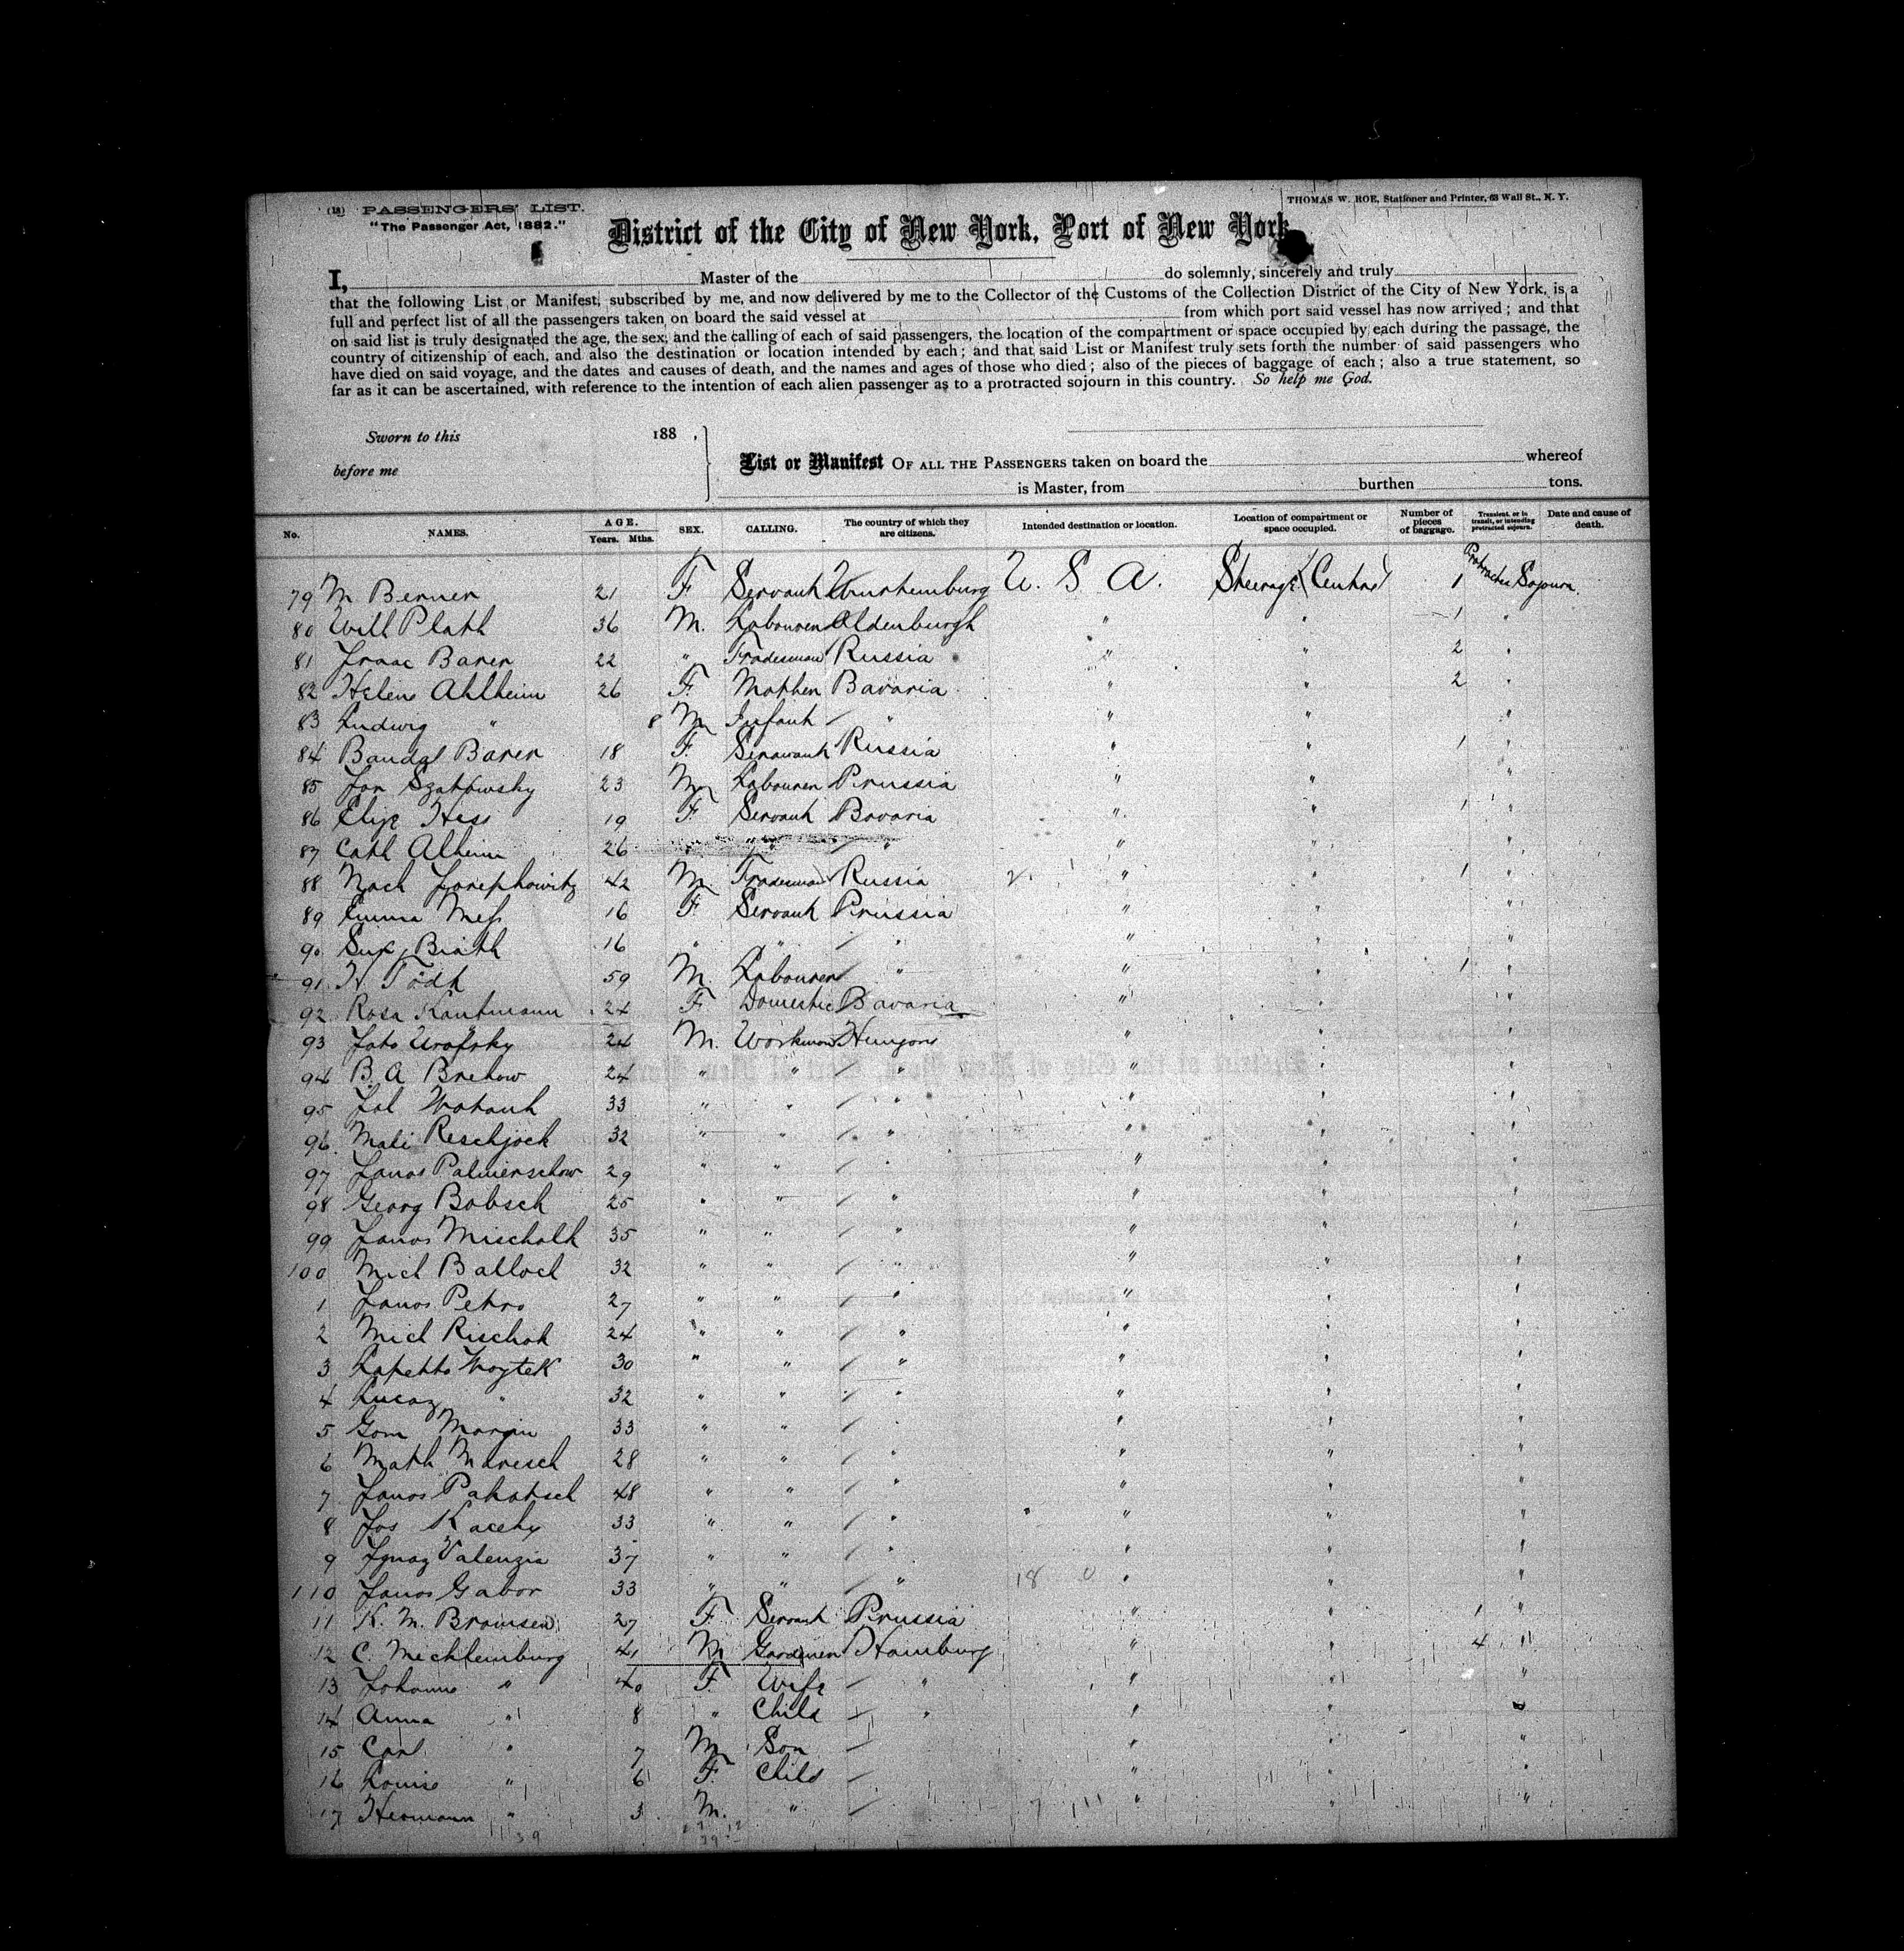 (18) PASSENGERS' LIST.
THOMAS W. ROE, Stationer and Printer, 63 Wall St., N. Y.
"The Passenger Act, 1882."
District of the City of New York, Port of New York.
I, Master of the do solemnly, sincerely and truly
that the following List or Manifest, subscribed by me, and now delivered by me to the Collector of the Customs of the Collection District of the City of New York, is a
full and perfect list of all the passengers taken on board the said vessel at from which port said vessel has now arrived; and that
on said list is truly designated the age, the sex, and the calling of each of said passengers, the location of the compartment or space occupied by each during the passage, the
country of citizenship of each, and also the destination or location intended by each; and that said List or Manifest truly sets forth the number of said passengers who
have died on said voyage, and the dates and causes of death, and the names and ages of those who died; also of the pieces of baggage of each; also a true statement, so
far as it can be ascertained, with reference to the intention of each alien passenger as to a protracted sojourn in this country. So help me God.
Sworn to this 188 .
before me
List or Manifest OF ALL THE PASSENGERS taken on board the whereof
is Master, from burthen tons.
No. NAMES. AGE. Years. Mths. SEX. CALLING. The country of which they are citizens. Intended destination or location. Location of compartment or space occupied. Number of pieces of baggage. Transient, or in transit, or intending protracted sojourn. Date and cause of death.
79 M Berner 21 F Servant Wurtemburg U. S A. Steerage (Central) 1 Protracted Sojourn.
80 Will Plath 36 M. Labourer Oldenburgh " " 1 "
81 Isaac Barer 22 " Tradesman Russia " " 2 "
82 Helene Ahlheim 26 F. Mother Bavaria " " 2 "
83 Ludwig " 8 M Infant " " " "
84 Barer 18 F. Russia " " 1 "
85 Jan Szatkowsky 23 M Labourer Prussia " " "
86 Elise Hess 19 F Servant Bavaria " " 1 "
87 Cath Alheim 26 " " " " " "
88 Josephowitz 42 M. Tradesman Russia " " 1 "
89 Emma Mess 16 F Servant Prussia " " "
90 16 " " " " " "
91 H. Tödt 59 M. Labourer " " " 1 "
92 Rosa Kaufmann 24 F Domestic Bavaria " " "
93 24 M. Workman Hungary " " "
94 B. A Brehow 24 " " " " " "
95 33 " " " " " "
96 Mali Reschjoch 32 " " " " " "
97 Janos Palmerschow 29 " " " " " "
98 Georg Bobsch 25 " " " " " "
99 Janos Mischalk 35 " " " " " "
100 Mich Balloch 32 " " " " " "
1 Janos Petro 27 " " " " " "
2 Mich Rischak 24 " " " " " "
3 Woytek 30 " " " " " "
4 Lucaz " 32 " " " " " "
5 33 " " " " " "
6 Math Maresch 28 " " " " " "
7 Janos Pakatsch 48 " " " " " "
8 Jos 33 " " " " " "
9 Ignaz Valenzia 37 " " " " " "
110 Janos Gabor 33 " " " " " "
11 K. M. Bromsen 27 F. Servant Prussia " " 1 "
12 C. Mechlemburg 41 M Gardener Hamburg " " 4 "
13 Johanne " 40 F. Wife " " " "
14 Anna " 8 " Child " " " "
15 Carl " 7 M Son " " "
16 Louise " 6 F. Child " " "
17 Hermann " 3 M. " " " "
39